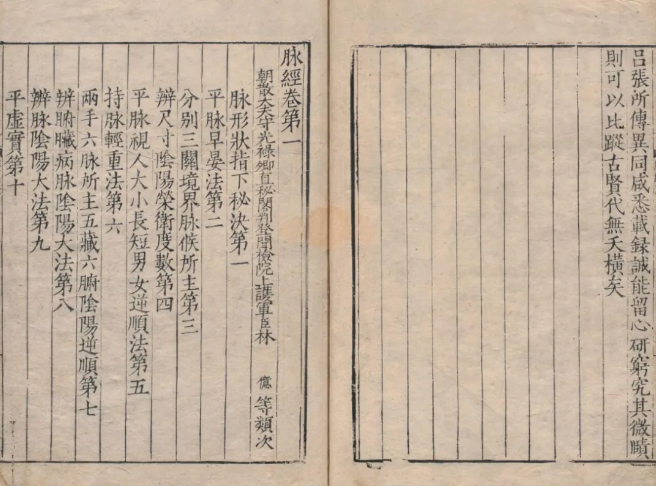 呂張所傳異同咸悉載録誠能留心研窮究其微賾
則可以比蹤古賢代無夭橫矣
脉經卷第一
朝散大夫守光祿卿直秘閣判登聞檢院上護軍臣林億等類次
脉形狀指下秘決第一
平脉早晏法第二
分别三關境界脉候所主第三
辨尺寸陰陽榮衛度數第四
平脉視人大小長短男女逆順法第五
持脉輕重法第六
兩手六脉所主五藏六腑陰陽逆順第七
辨腑臟病脉陰陽大法第八
辨脉陰陽大法第九
平虛實第十